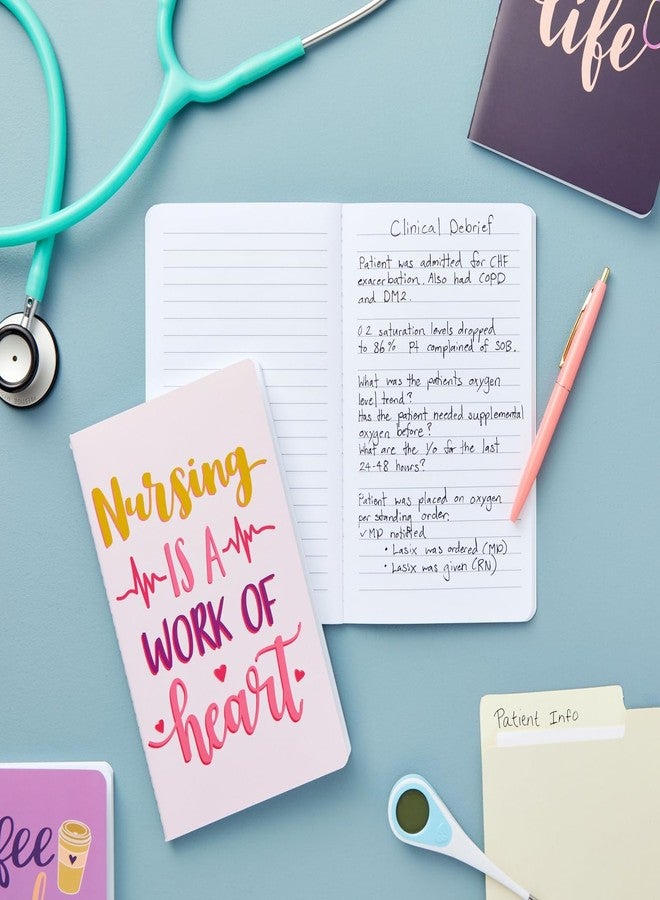 life
Clinical Debrief
Patient was admitted for CHF
exacerbation. Also had COPD
and DM2.
O2 saturation levels dropped
to 86% Pt complained of SOB.
What was the patients oxygen
level trend?
Has the patient needed supplemental
oxygen before?
What are the I/o for the last
24-48 hours?
Patient was placed on oxygen
per standing order.
✓MD notified
• Lasix was ordered (MD)
• Lasix was given (RN)
Nursing
IS A
WORK OF
heart
Patient Info
fee